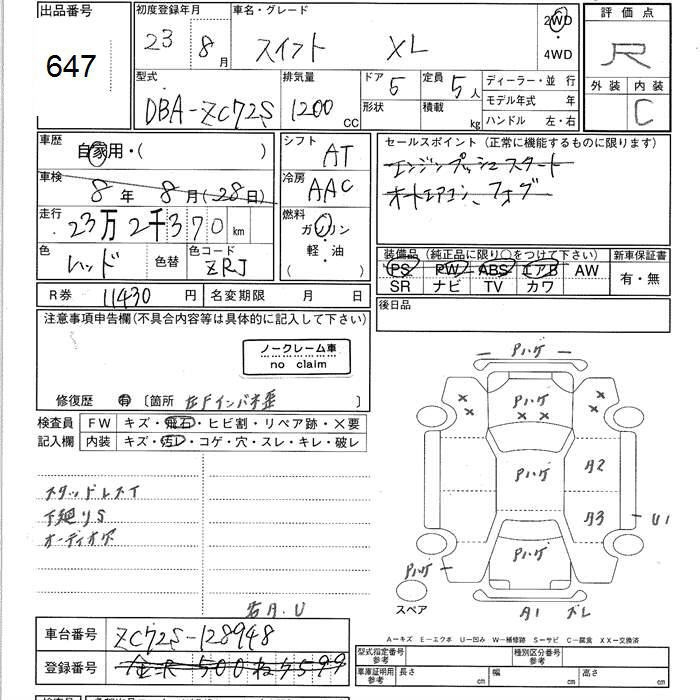 出品番号 初度登録年月 車名・グレード 2WD 評価点
647 23 8月 スイフト XL ・ R
4WD
型式 排気量 ドア 5 定員 5人 ディーラー・並 行 外装 内装
DBA-ZC72S 1200cc 形状 積載 kg モデル年式 年 C
ハンドル 左・右
車歴 自家用・( ) シフト AT セールスポイント (正常に機能するものに限ります)
車検 8年 8月(28日) 冷房 AAC エンジンプッシュスタート
オートエアコン、フォグ
走行 23万2千370km 燃料 ガソリン
軽・油
( )
色 レッド 色替 色コード ZRJ 装備品 (純正品に限り○をつけて下さい) 新車保証書
PS PW ABS エアB AW 有・無
SR ナビ TV カワ
R券 11430円 名変期限 月 日 後日品
注意事項申告欄(不具合内容等は具体的に記入して下さい)
ノークレーム車
no claim
修復歴 有 〔箇所 左Fインパネ歪 〕
検査員 FW キズ・飛石・ヒビ割・リペア跡・×要
記入欄 内装 キズ・汚レ・コゲ・穴・スレ・キレ・破レ
Pハゲ
Pハゲ
× × × ×
Pハゲ A2
スタッドレスT
下廻りS A3 U1
オーディオ欠
Pハゲ Pハゲ
スペア A1 ズレ
右A.U
車台番号 ZC72S-128948
A-キズ E-エクボ U-凹み W-補修跡 S-サビ C-腐食 XX-交換済
登録番号 金沢 500 ね 7599
型式指定番号 参考 種別区分番号 参考
車庫証明用 参考 長さ cm 幅 cm 高さ cm